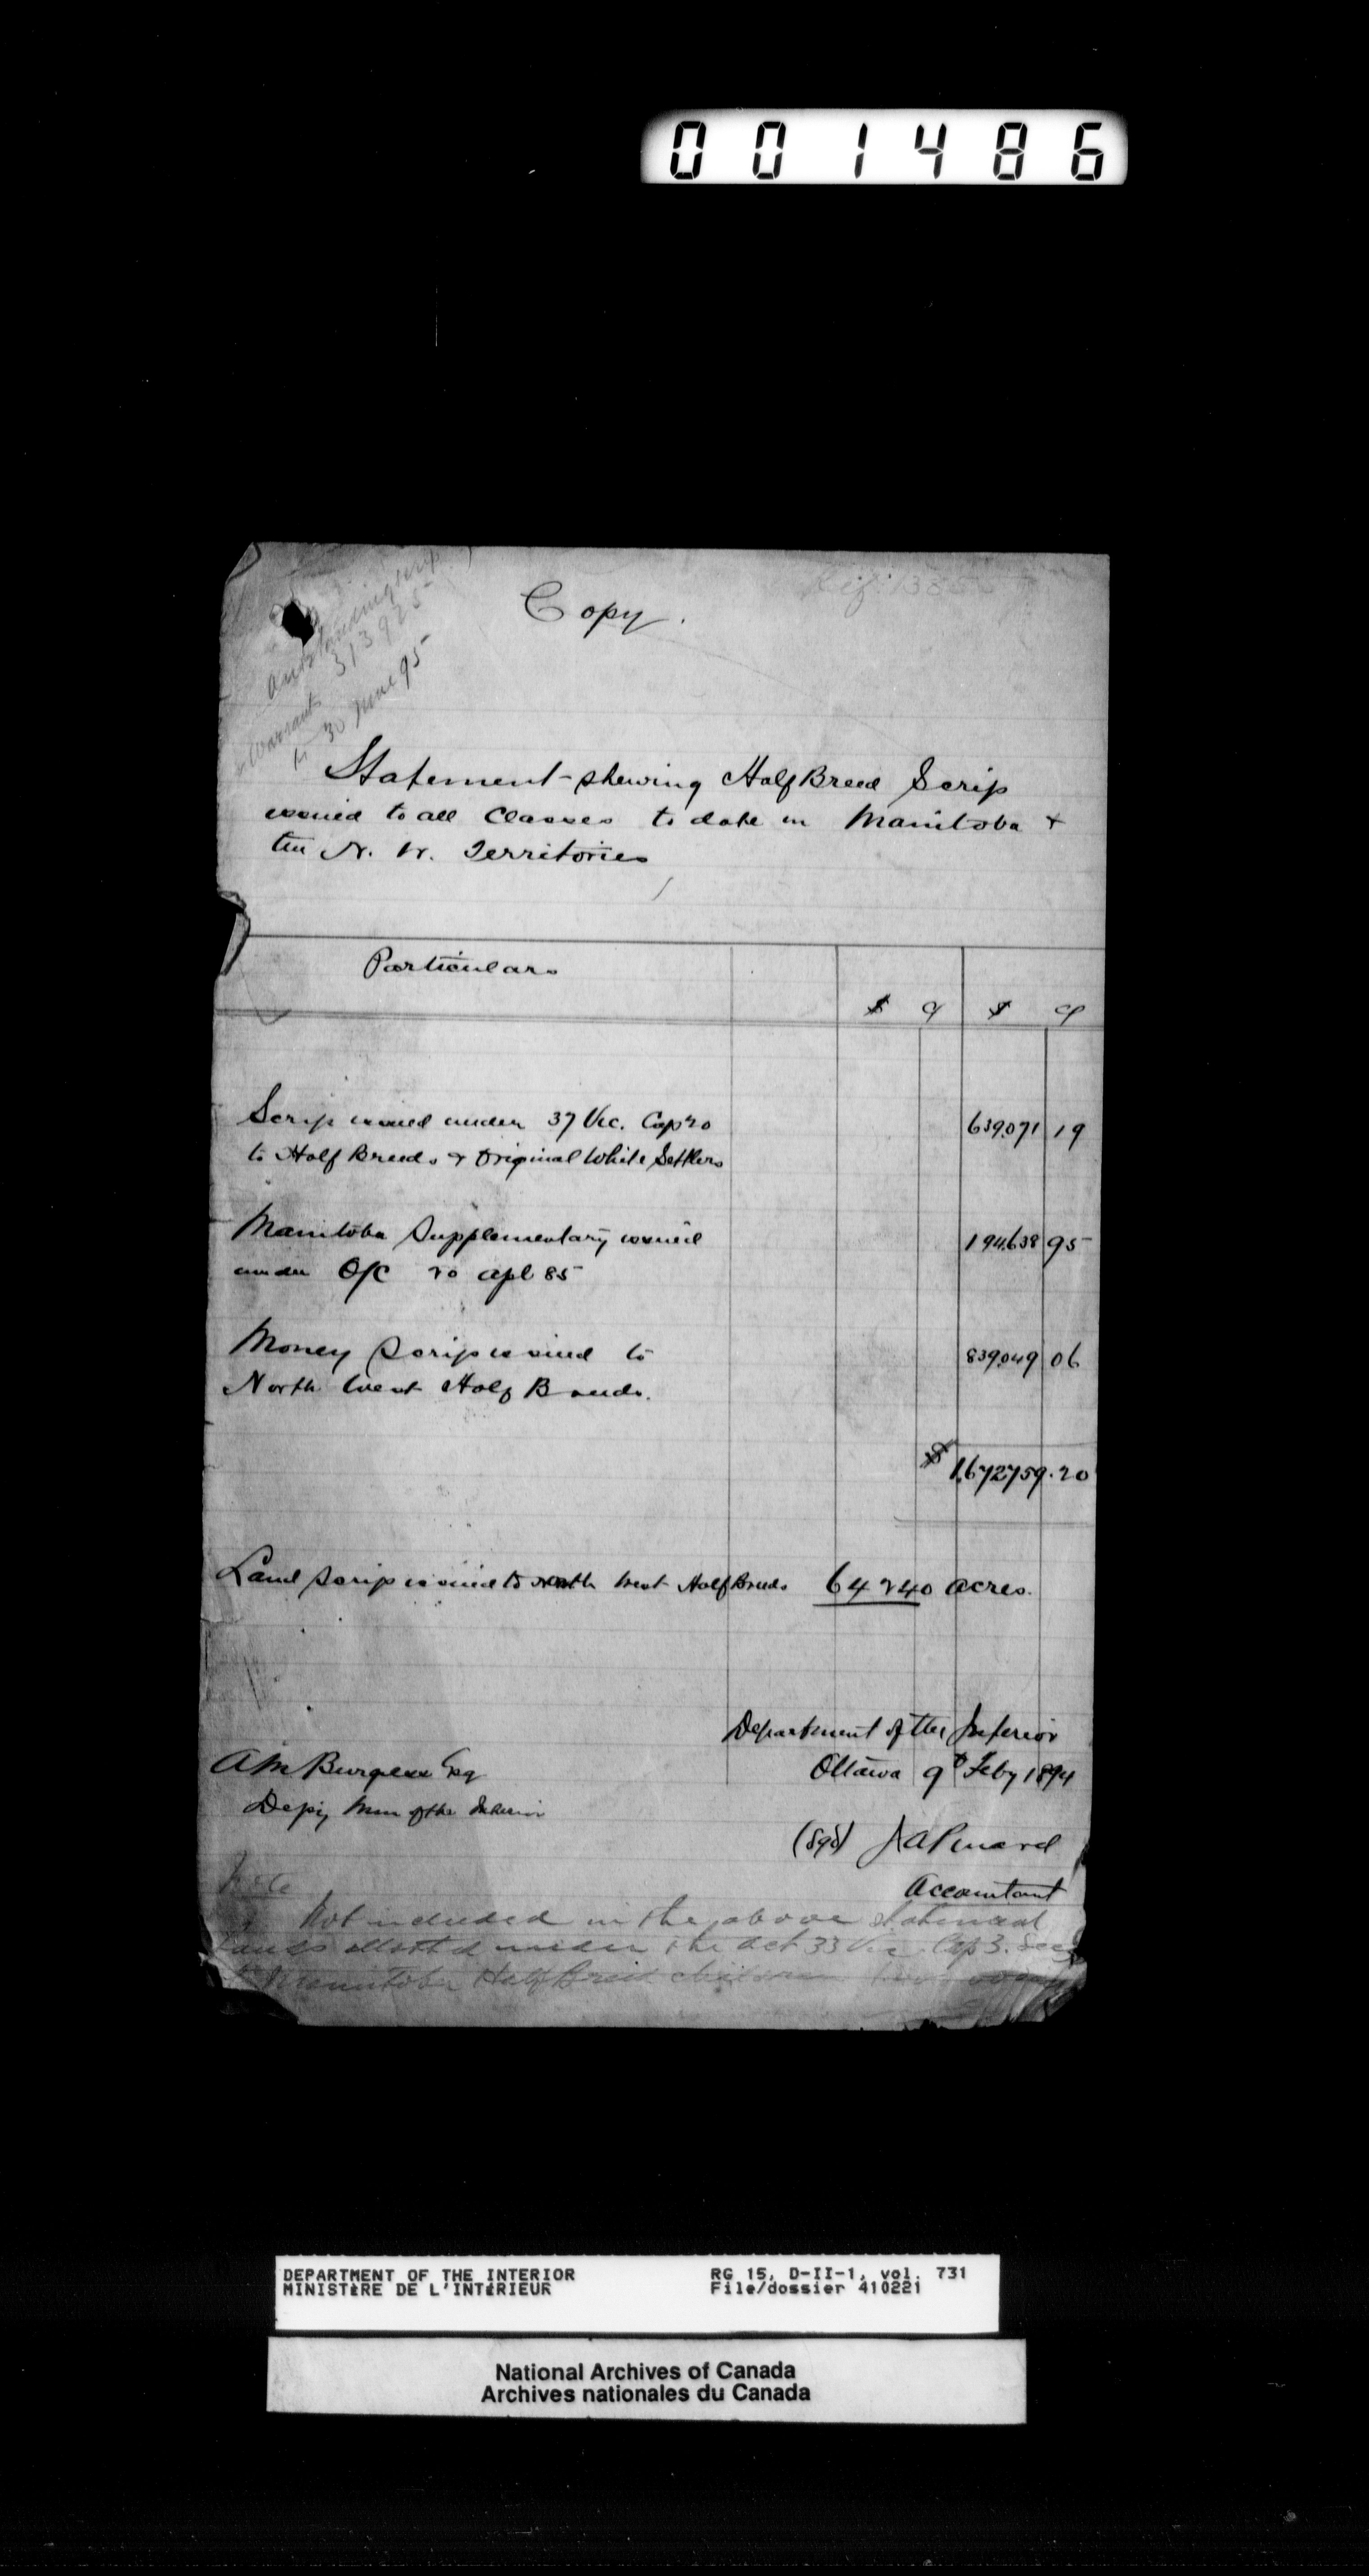 001486
Copy.
Outstanding scrip
Warrants 313925
to 30 June 95
Statement shewing Half Breed Scrip
issued to all Classes to date in Manitoba &
the N. W. Territories
Particulars
$ c $ c
Scrip issued under 37 Vic. Cap 20 639,071 19
to Half Breeds & Original White Settlers
Manitoba Supplementary issued 194,638 95
under O/C 20 apl 85
Money Scrip issued to 839,049 06
North West Half Breeds.
$ 1,672,759.20
Land Scrip issued to North West Half Breeds 64240 acres.
Department of the Interior
Ottawa 9th Feby 1894
A M Burgess Esq
Depy Min of the Interior
(Sgd) J A Pinard
Accountant
Note
Not included in the above statement
Lands allotted under the Act 33 Vic. Cap 3. Sec
to Manitoba Half Breed children
DEPARTMENT OF THE INTERIOR
MINISTÈRE DE L'INTÉRIEUR
RG 15, D-II-1, vol. 731
File/dossier 410221
National Archives of Canada
Archives nationales du Canada